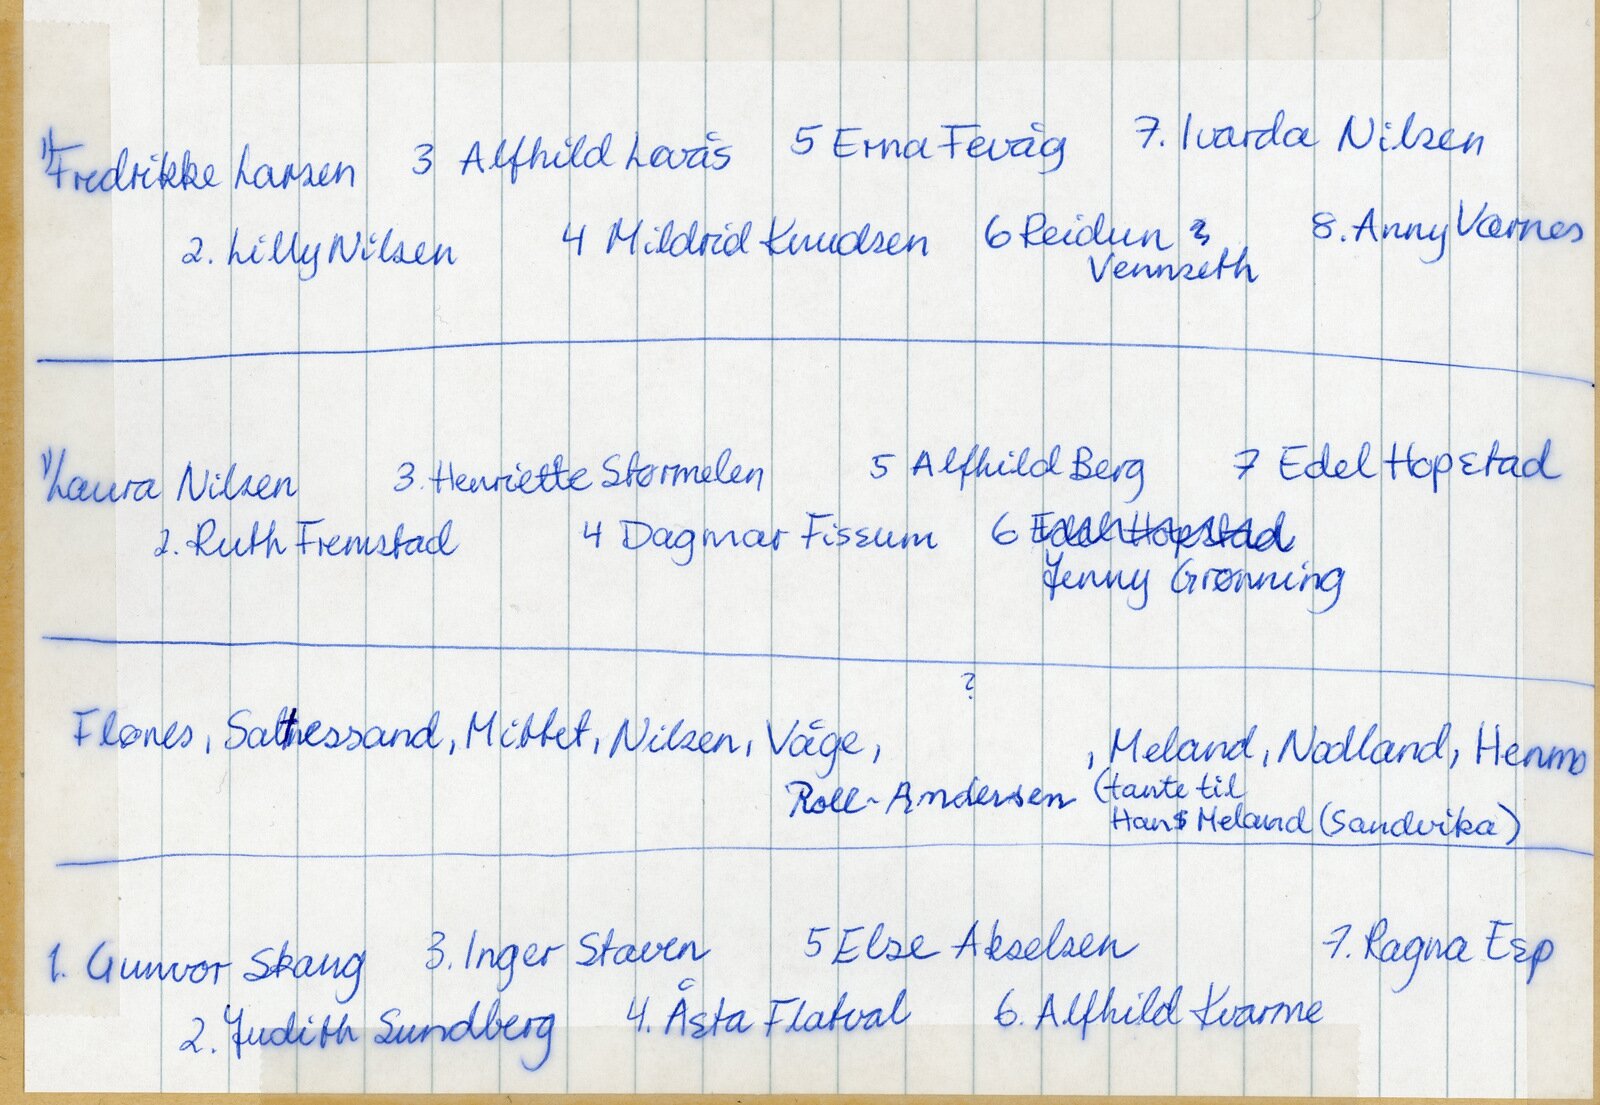 1) Fredrikke Larsen 3 Alfhild Løvås 5 Erna Fevåg 7. Ivarda Nilsen
2. Lilly Nilsen 4 Mildrid Knudsen 6 Reidun ? 8. Anny Værnes
Vennseth
1) Laura Nilsen 3. Henriette Størmelen 5 Alfhild Berg 7 Edel Hopstad
2. Ruth Fremstad 4 Dagmar Fissum 6 Edel Hopstad
Jenny Grønning
?
Flønes, Saltnessand, Mittet, Nilsen, Våge, , Meland, Nodland, Henmo
Roll-Andersen (tante til
Hans Meland (Sandvika)
1. Gunvor Skaug 3. Inger Staven 5 Else Akselsen 7. Ragna Esp
2. Judith Sundberg 4. Åsta Flatval 6. Alfhild Kvarme